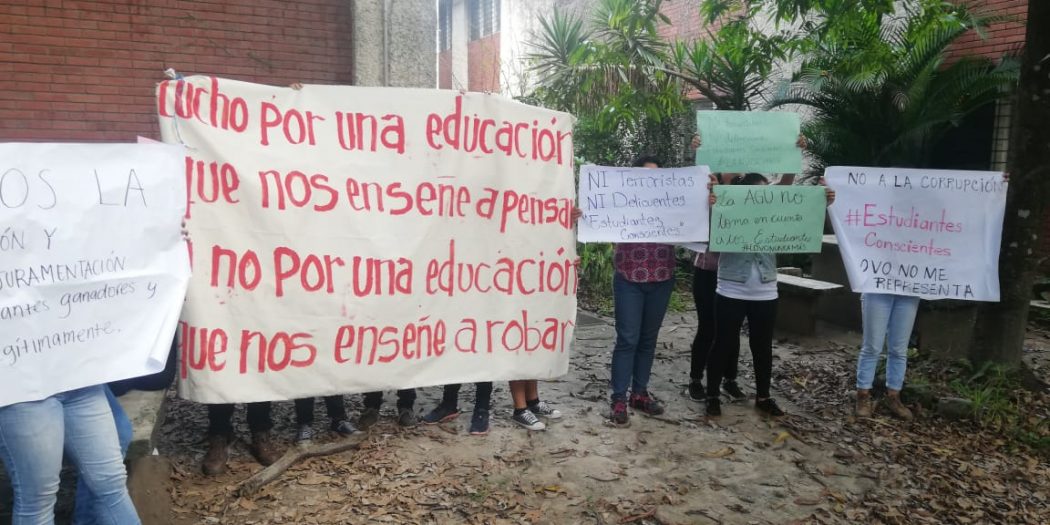 OS LA
IÓN Y
JURAMENTACIÓN
antes ganadores y
gitimamente.
Lucho por una educación
que nos enseñe a pensar
no por una educación
que nos enseñe a robar
NI Terroristas
NI Delicuentes
"Estudiantes
Conscientes"
La AGU no
toma en cuenta
a los Estudiantes
NO A LA CORRUPCIÓN
#Estudiantes
Conscientes
OVO NO ME
REPRESENTA